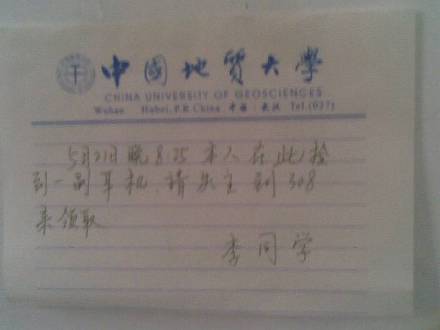 中國地質大學
CHINA UNIVERSITY OF GEOSCIENCES
Wuhan Hubei, P.R.China 中国·武汉 Tel (027)
5月21日晚8:25 本人在此捡
到一副耳机,请失主到308
来领取
李同学